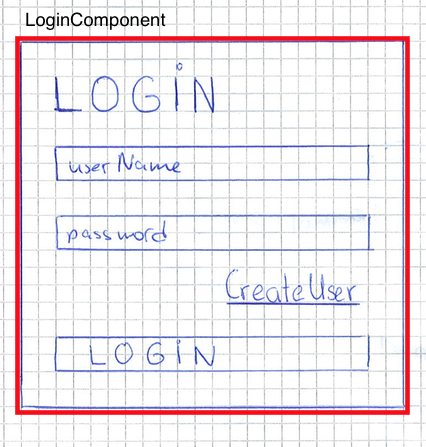 LoginComponent
LOGIN
userName
password
CreateUser
LOGIN